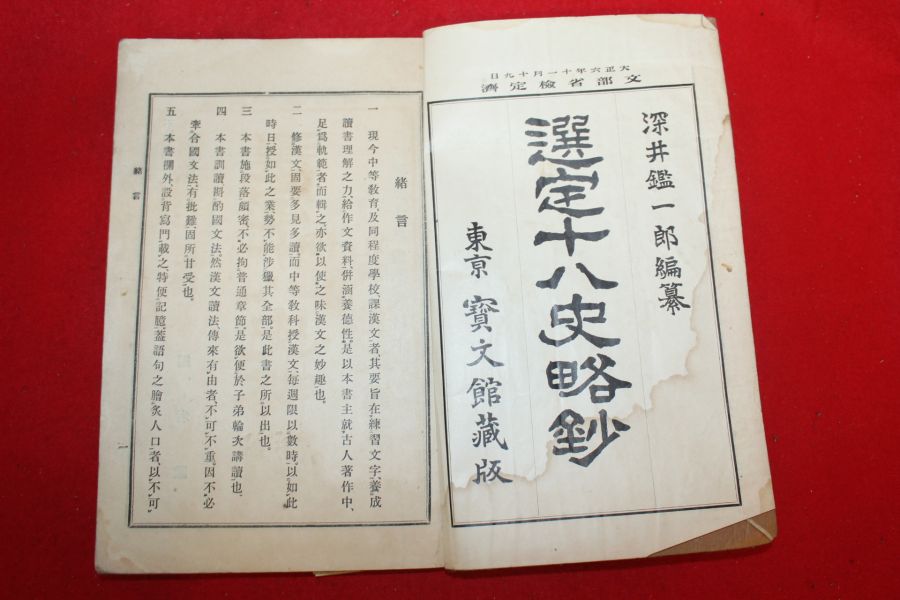 大正六年十一月十九日
文部省檢定濟
深井鑑一郎編纂
選定十八史略鈔
東京 寶文館藏版
緒言
一 現今中等敎育及同程度學校課漢文者、其要旨在練習文字、養成
讀書理解之力、給作文資料、併涵養德性。是以本書主就古人著作中、
足爲軌範者而輯之。亦欲以使之味漢文之妙趣也。
二 修漢文、固要多見多讀。而中等敎科授漢文、每週限以數時。以如此
時日、授如此之業、勢不能涉獵其全部。是此書之所以出也。
三 本書施段落頗密、不必拘普通章節。是欲便於子弟輪次講讀也。
四 本書訓讀斟酌國文法。然漢文讀法、傳來有由者、不可不重。因不必
牽合國文法。有批難、固所甘受也。
五 本書欄外、設背寫門、載之、特便記臆。蓋語句之膾炙人口者、以不可
緒言
一